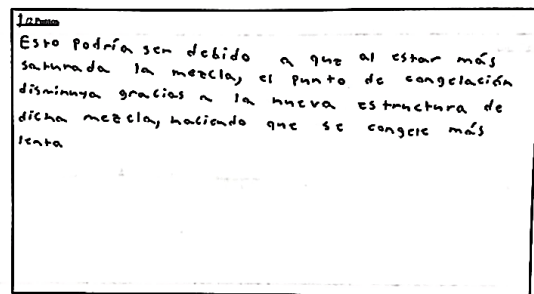 Esto podría ser debido a que al estar más
saturada la mezcla, el punto de congelación
disminuya gracias a la nueva estructura de
dicha mezcla, haciendo que se congele más
lenta